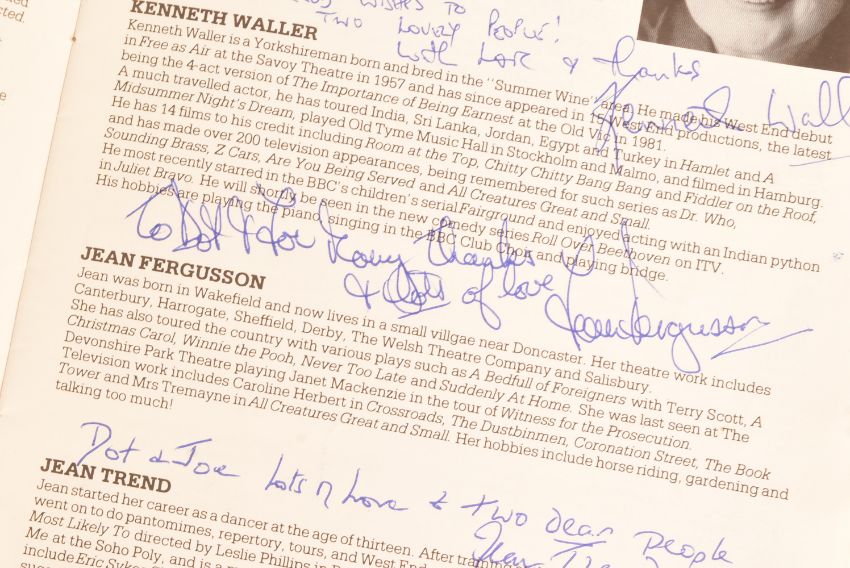 cted.
WISHES TO
TWO LOVELY PEOPLE!
with Love & thanks
KENNETH WALLER
Kenneth Wall
Kenneth Waller is a Yorkshireman born and bred in the "Summer Wine" area. He made his West End debut
in Free as Air at the Savoy Theatre in 1957 and has since appeared in 15 West End productions, the latest
being the 4-act version of The Importance of Being Earnest at the Old Vic in 1981.
A much travelled actor, he has toured India, Sri Lanka, Jordan, Egypt and Turkey in Hamlet and A
Midsummer Night's Dream, played Old Tyme Music Hall in Stockholm and Malmo, and filmed in Hamburg.
He has 14 films to his credit including Room at the Top, Chitty Chitty Bang Bang and Fiddler on the Roof,
and has made over 200 television appearances, being remembered for such series as Dr. Who,
Sounding Brass, Z Cars, Are You Being Served and All Creatures Great and Small.
He most recently starred in the BBC's children's serial Fairground and enjoyed acting with an Indian python
in Juliet Bravo. He will shortly be seen in the new comedy series Roll Over Beethoven on ITV.
His hobbies are playing the piano, singing in the BBC Club Choir and playing bridge.
To Dot & Joe Many thanks
& lots of love
Jean Fergusson
JEAN FERGUSSON
Jean was born in Wakefield and now lives in a small villgae near Doncaster. Her theatre work includes
Canterbury, Harrogate, Sheffield, Derby, The Welsh Theatre Company and Salisbury.
She has also toured the country with various plays such as A Bedfull of Foreigners with Terry Scott, A
Christmas Carol, Winnie the Pooh, Never Too Late and Suddenly At Home. She was last seen at The
Devonshire Park Theatre playing Janet Mackenzie in the tour of Witness for the Prosecution.
Television work includes Caroline Herbert in Crossroads, The Dustbinmen, Coronation Street, The Book
Tower and Mrs Tremayne in All Creatures Great and Small. Her hobbies include horse riding, gardening and
talking too much!
Dot & Joe Lots of Love to two dear People
Jean
JEAN TREND
Jean started her career as a dancer at the age of thirteen. After training
went on to do pantomimes, repertory, tours, and West End
Most Likely To directed by Leslie Phillips in
Me at the Soho Poly, and is a
include Eric Sykes